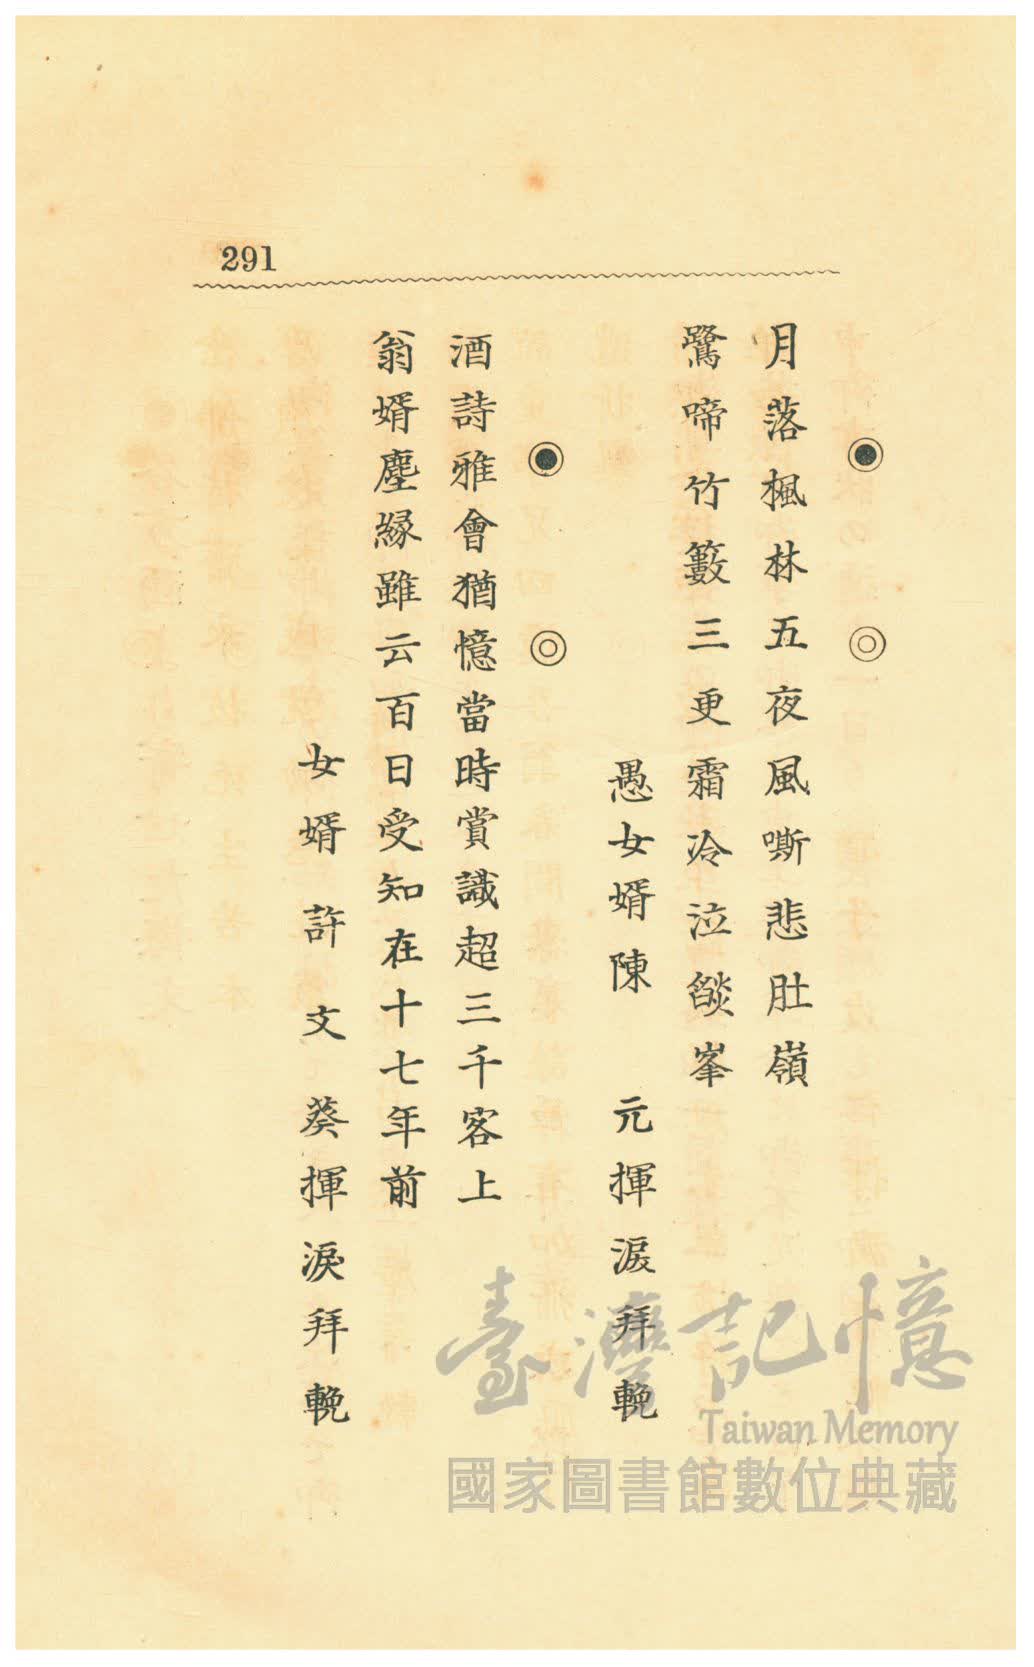 291
◉ ◎
月落楓林五夜風嘶悲肚嶺
鶯啼竹籔三更霜冷泣燄峯
愚女婿陳 元揮淚拜輓
◉ ◎
酒詩雅會猶憶當時賞識超三千客上
翁婿塵緣雖云百日受知在十七年前
女婿許文葵揮淚拜輓
臺灣記憶
Taiwan Memory
國家圖書館數位典藏